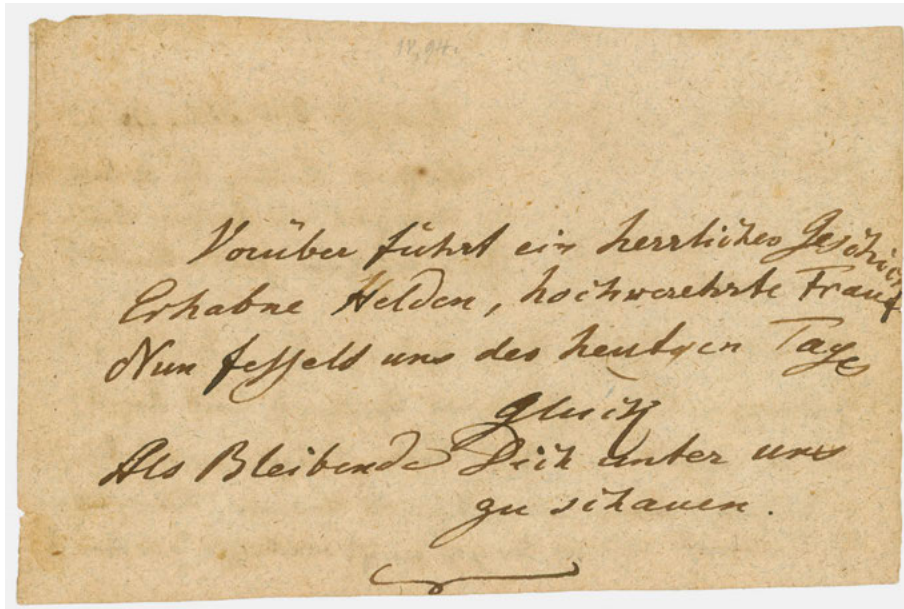 Vorüber führt ein herrliches Geschick
Erhabne Helden, hochverehrte Frauen
Nun fesselt uns des heutgen Tages
Glück
Als Bleibende Dich unter uns
zu schauen.